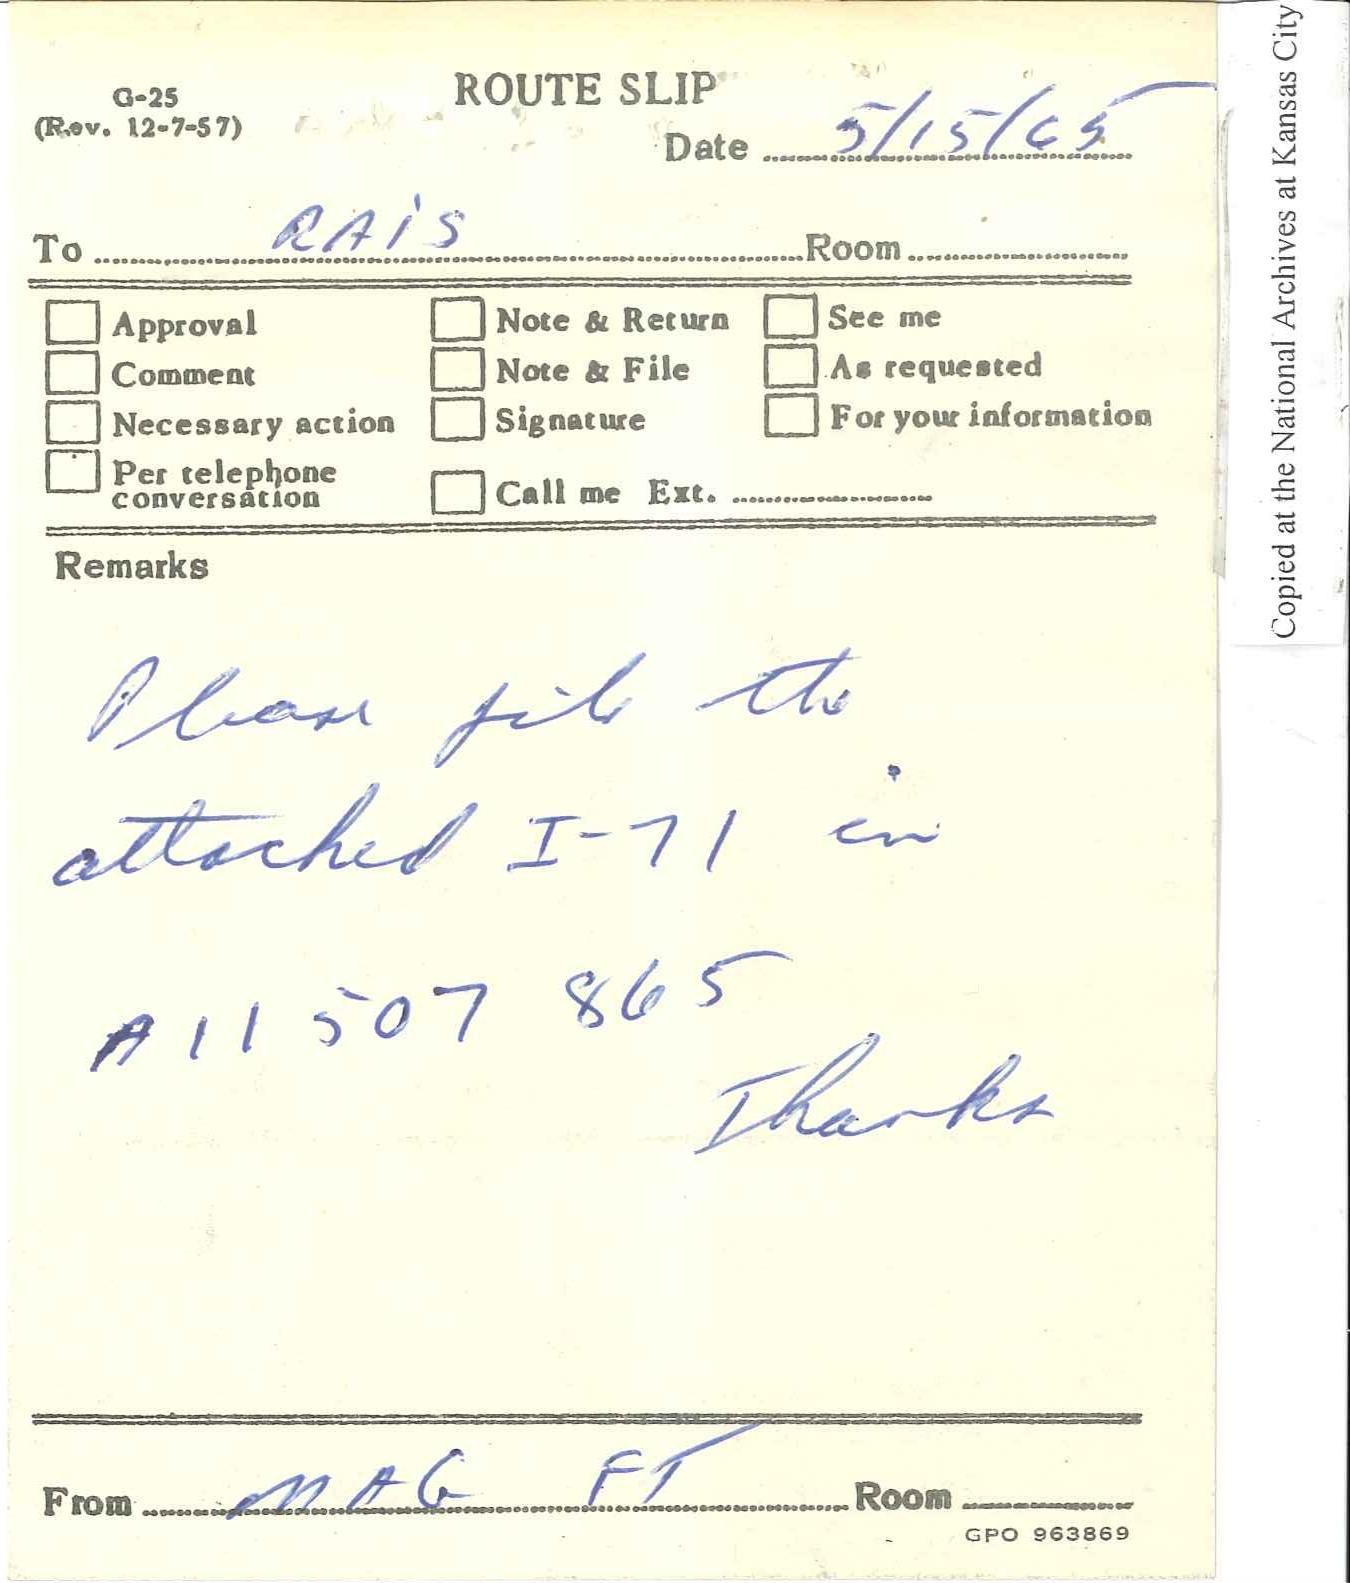 G-25
(Rev. 12-7-57)
ROUTE SLIP
Date 5/15/65
To RAiS Room
Approval
Comment
Necessary action
Per telephone
conversation
Note & Return
Note & File
Signature
Call me Ext.
See me
As requested
For your information
Remarks
Please file the
attached I-71 in
A11 507 865
Thanks
From MAG FT Room
GPO 963869
Copied at the National Archives at Kansas City